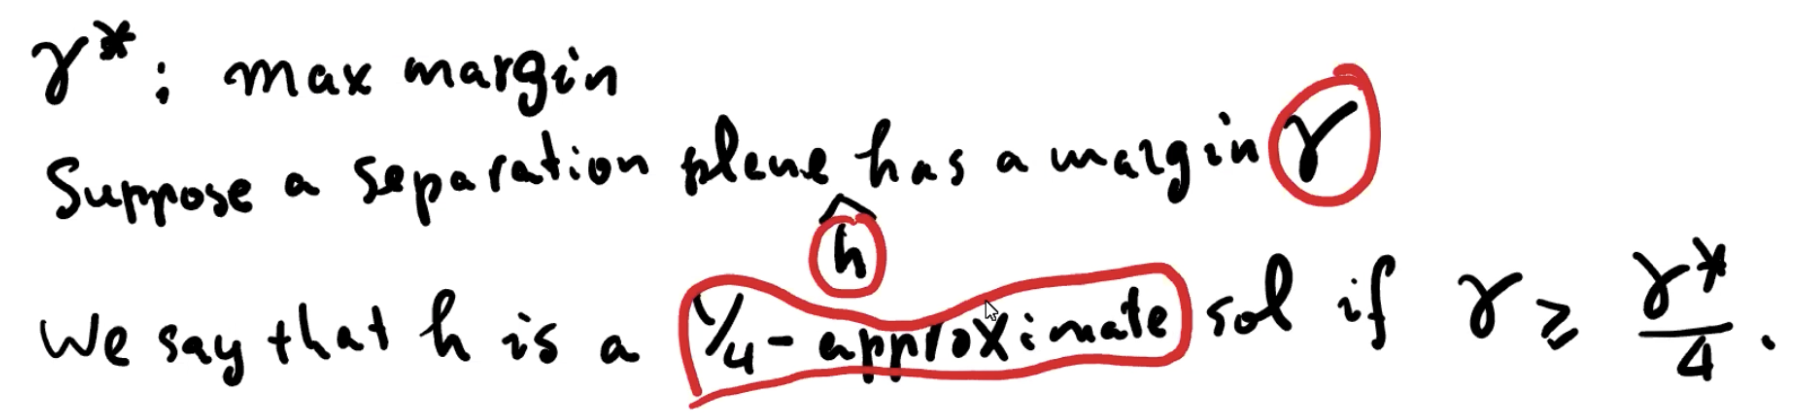 γ*: max margin
Suppose a separation plane h has a margin γ
We say that h is a 1/4-approximate sol if γ ≥ γ*/4.